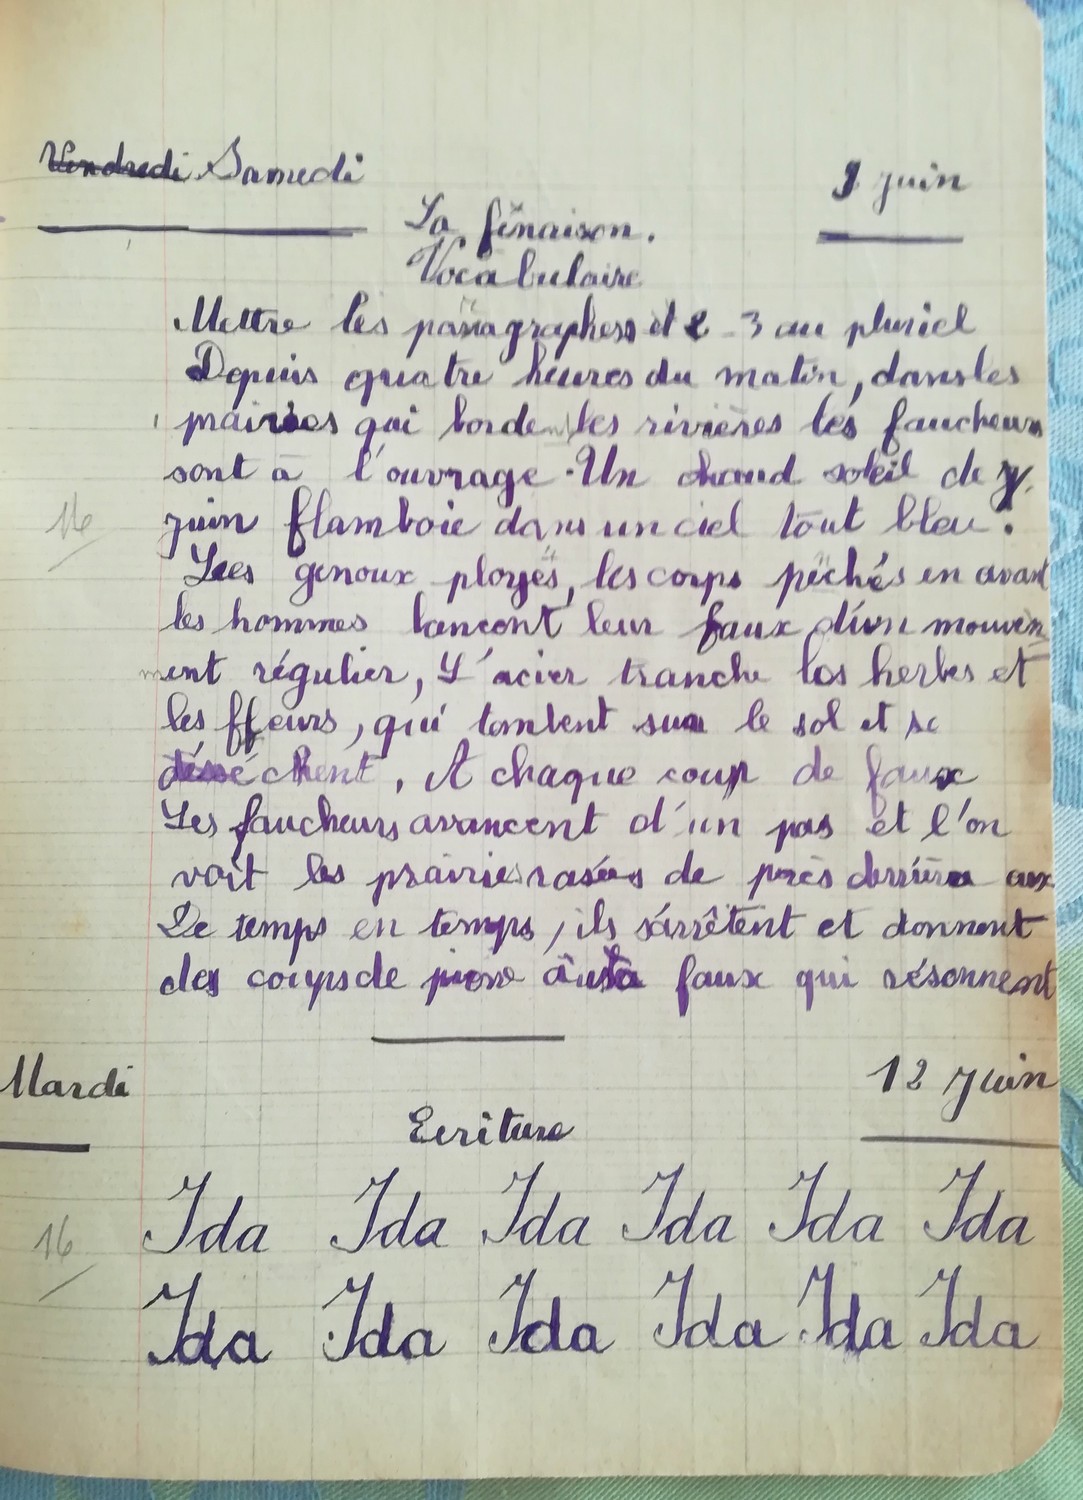 Vendredi Samedi 9 juin
La fenaison.
Vocabulaire
Mettre les paragraphes et 2 - 3 au pluriel
Depuis quatre heures du matin, dans les
prairies qui bordent les rivières les faucheurs
sont à l'ouvrage. Un chaud soleil de
juin flamboie dans un ciel tout bleu.
16
Les genoux ployés, les corps pêchés en avant
les hommes lancent leur faux d'un mouvem
ment régulier, L'acier tranche les herbes et
les fleurs, qui tombent sur le sol et se
dessèchent, A chaque coup de faux
Les faucheurs avancent d'un pas et l'on
voit les prairies rasées de près derrière eux
De temps en temps, ils s'arrêtent et donnent
des coups de pierre à faux qui résonnent
Mardi 12 juin
Ecriture
16
Ida Ida Ida Ida Ida Ida
Ida Ida Ida Ida Ida Ida